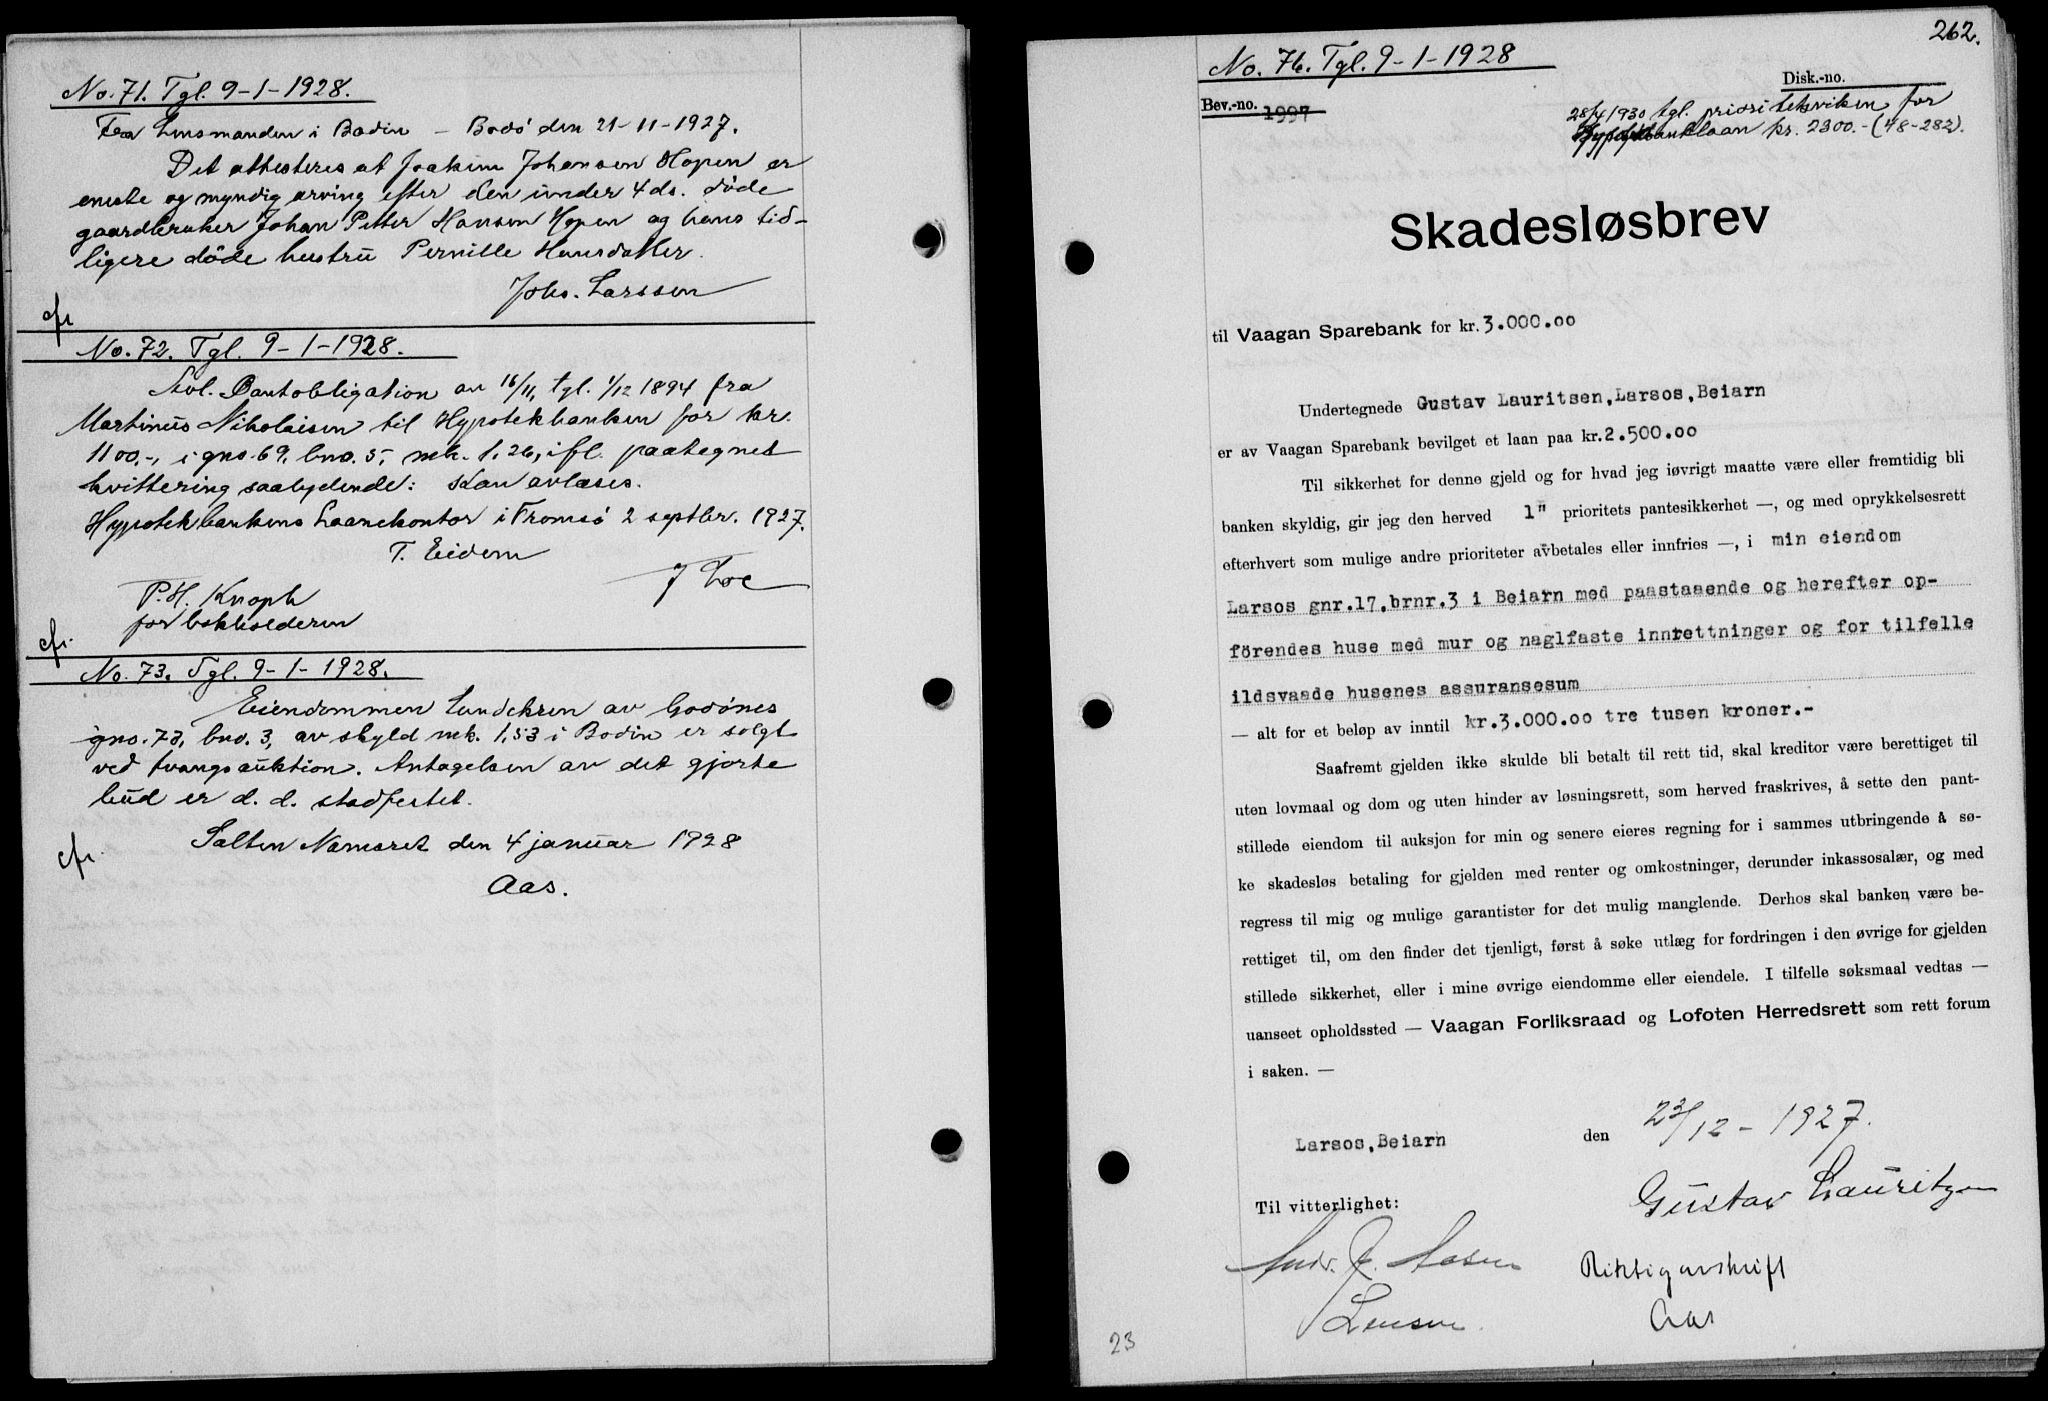 No. 71. Tgl. 9-1-1928.
Fra Lensmanden i Bodin – Bodö den 21-11-1927.
Det attesteres at Joakim Johansen Hopen er
eneste og myndig arving efter den under 4 ds. döde
gaardbruker Johan Petter Hansen Hopen og hans tid-
ligere döde hustru Pernille Hansdatter.
Johs. Larssen
cfr
No. 72. Tgl. 9-1-1928.
Avl. Pantobligation av 16/11, tgl. 1/12 1894 fra
Martinus Nikolaisen til Hypotekbanken for kr.
1100.-, i gno. 69, bno. 5, mk. 1,26, ifl. paategnet
kvittering saalydende: Kan avlæses.
Hypotekbankens Laanekontor i Tromsö 2 septbr. 1927.
T. Eidem
P. H. Knoph
for bokholderen
cfr.
No. 73. Tgl. 9-1-1928.
Eiendommen av Godönes
gno. 73, bno. 3, av skyld mk. 1,53 i Bodin er solgt
ved tvangsauktion. Antagelsen av det gjorte
bud er d. d. stadfestet.
Salten Namsret den 4 januar 1928
Aas.
cfr.
262.
No. 76. Tgl. 9-1-1928
Disk.-no.
Bev.-no. 1997
28/4 1930 tgl. prioritetsviken for
Hypotekbanklaan kr. 2300.- (48-282).
Skadesløsbrev
til Vaagan Sparebank for kr. 3.000.00
Undertegnede Gustav Lauritsen, Larsos, Beiarn
er av Vaagan Sparebank bevilget et laan paa kr. 2.500.00
Til sikkerhet for denne gjeld og for hvad jeg iøvrigt maatte være eller fremtidig bli
banken skyldig, gir jeg den herved 1" prioritets pantesikkerhet —, og med oprykkelsesrett
efterhvert som mulige andre prioriteter avbetales eller innfries —, i min eiendom
Larsos gnr.17, brnr.3 i Beiarn med paastaaende og herefter op-
förendes huse med mur og naglfaste innrettninger og for tilfelle
ildsvaade husenes assuransesum
— alt for et beløp av inntil kr.3.000.00 tre tusen kroner.-
Saafremt gjelden ikke skulde bli betalt til rett tid, skal kreditor være berettiget til
uten lovmaal og dom og uten hinder av løsningsrett, som herved fraskrives, å sette den pant-
stillede eiendom til auksjon for min og senere eieres regning for i sammes utbringende å sø-
ke skadesløs betaling for gjelden med renter og omkostninger, derunder inkassosalær, og med
regress til mig og mulige garantister for det mulig manglende. Derhos skal banken være be-
rettiget til, om den finder det tjenligt, først å søke utlæg for fordringen i den øvrige for gjelden
stillede sikkerhet, eller i mine øvrige eiendomme eller eiendele. I tilfelle søksmaal vedtas —
uanseet opholdssted — Vaagan Forliksraad og Lofoten Herredsrett som rett forum
i saken. —
Larsos, Beiarn den 23/12 - 1927.
Gustav Lauritzen
Til vitterlighet:
Andr. J. Aasen
Rigtig avskrift
Aas
23